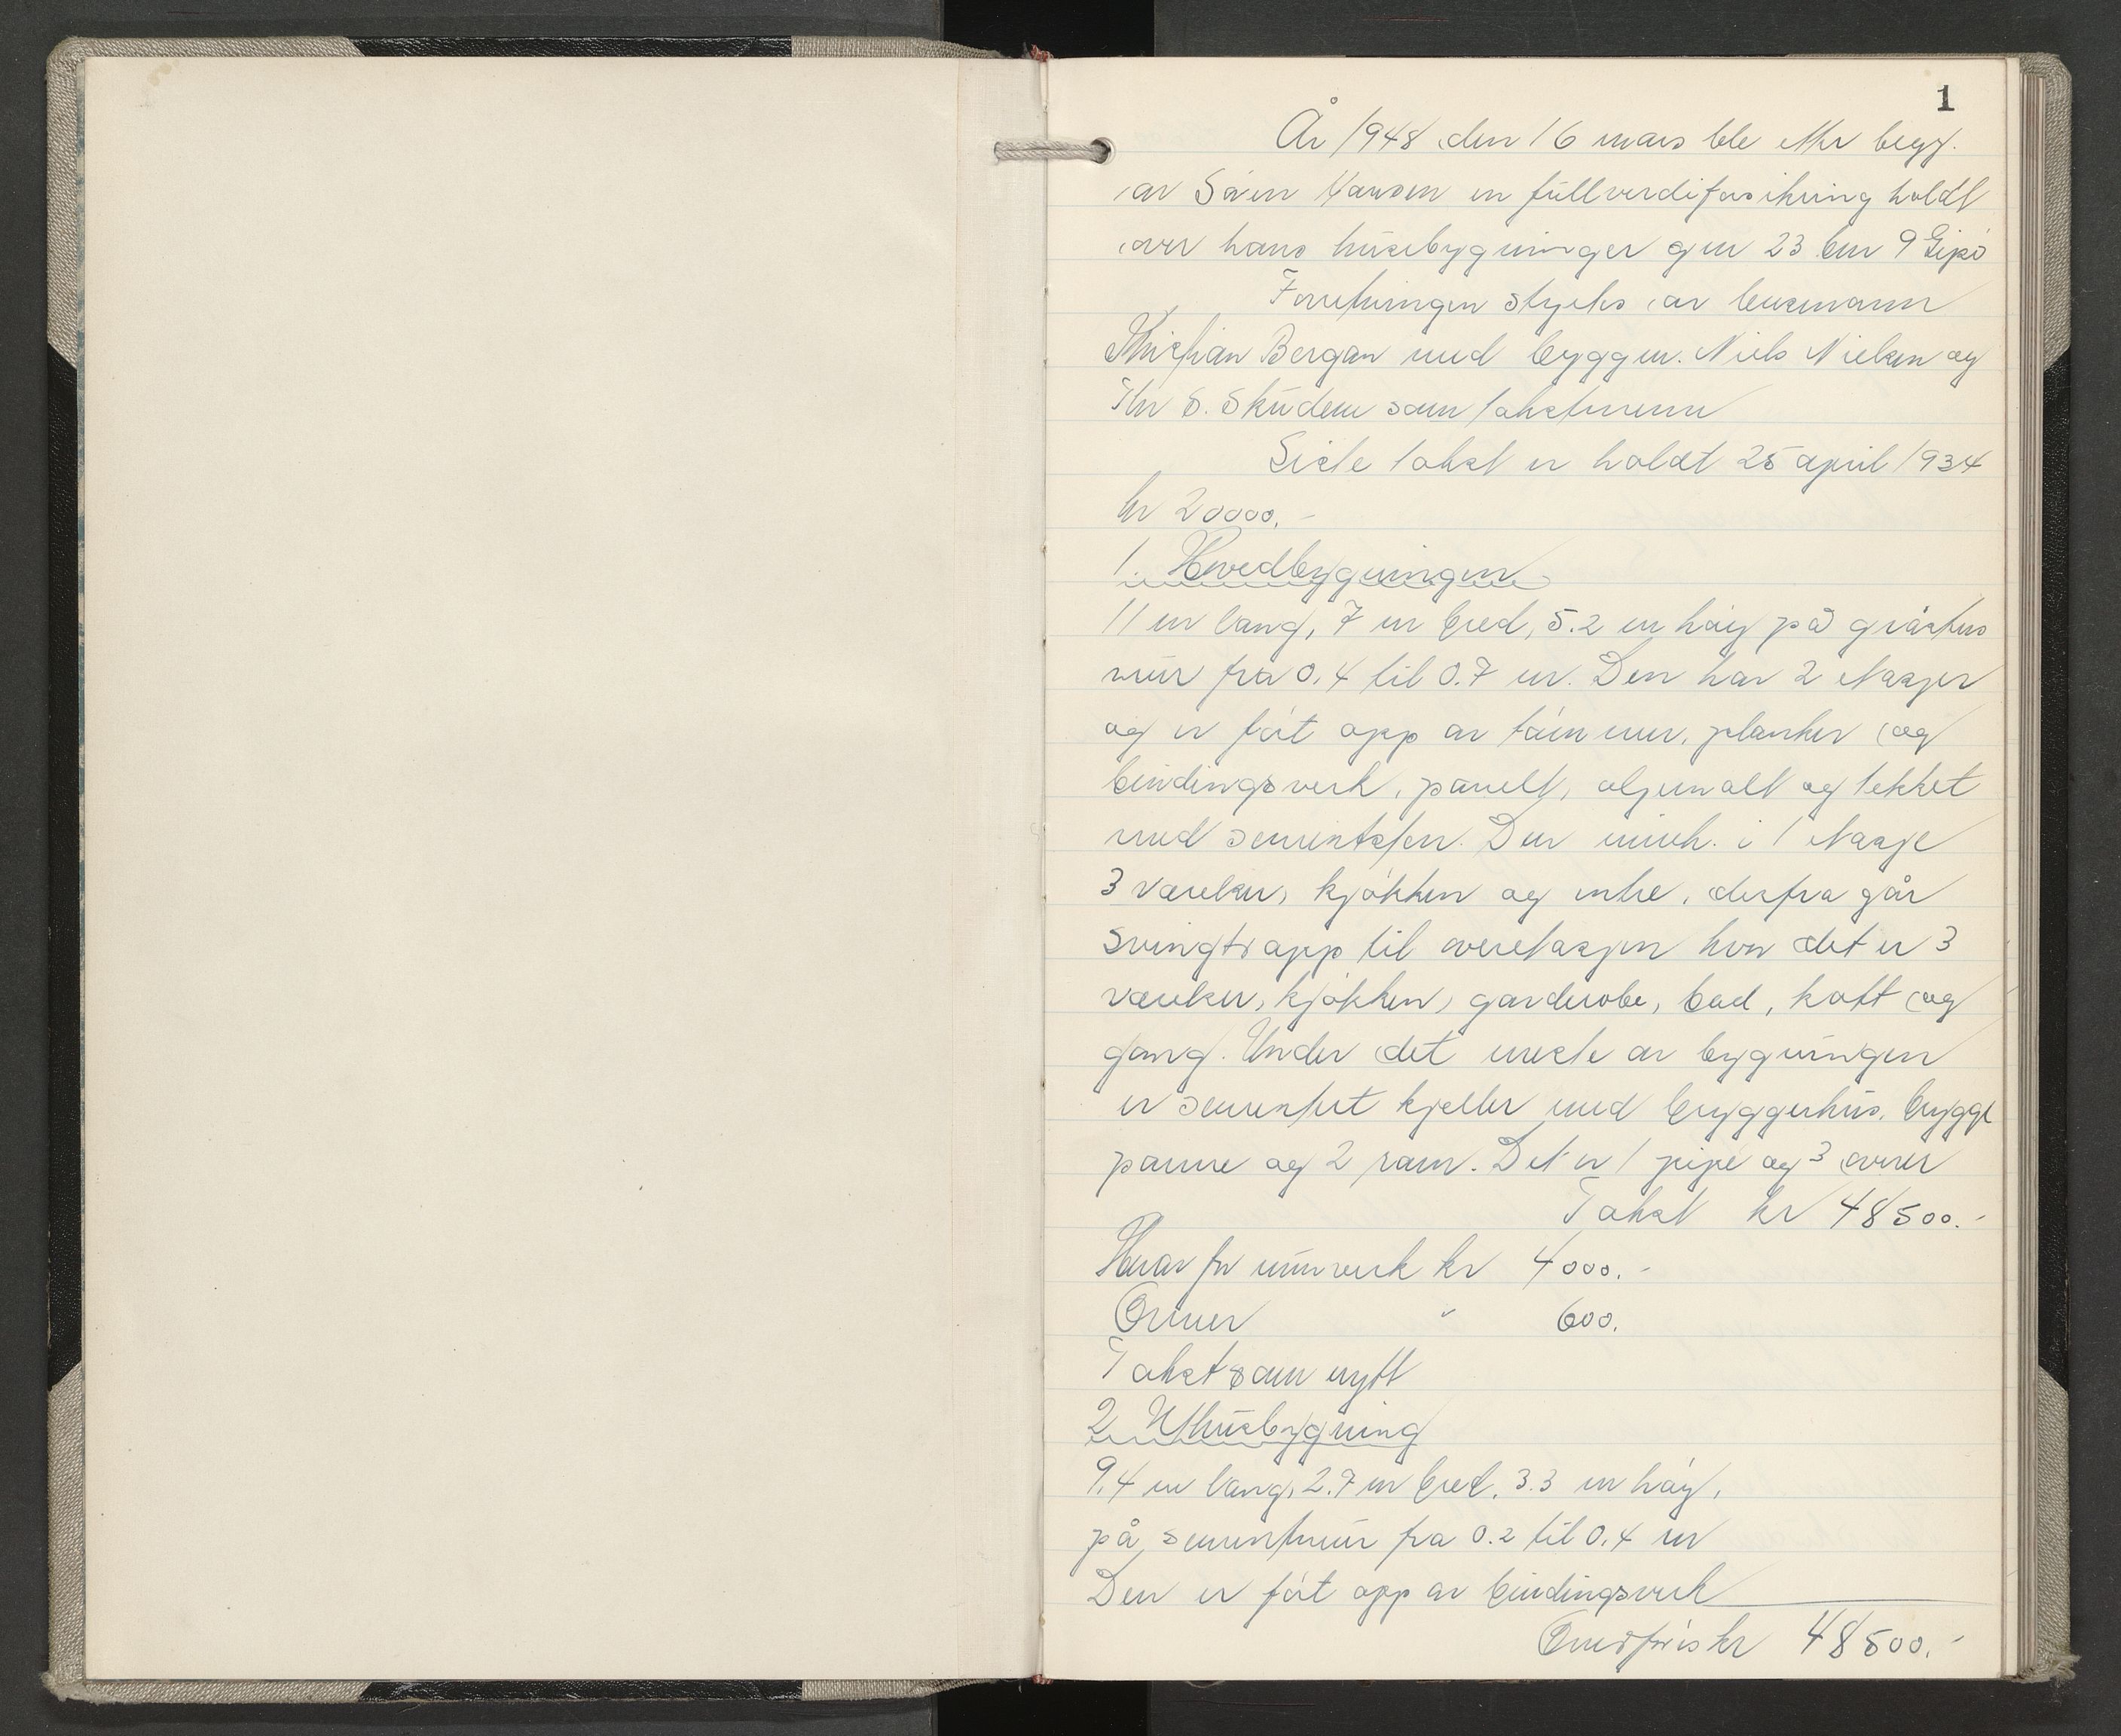 1
År 1948 den 16 mars ble etter begj.
av Søren Hansen en fullverdiforsikring holdt
over hans husebygninger gnr 23 bnr 9 Gipø
Forretningen styrtes av lensmann
Kristian Bergan med byggm. Niels Nielsen og
Thr S. Skudem som takstmenn
Siste takst er holdt 25 april 1934
kr 20000.-
1. Hovedbygningen
11 m lang, 7 m bred, 5.2 m høig på gråstens
mur fra 0.4 til 0.7 m. Den har 2 etasjer
og er ført opp av tømmer, planker og
bindingsverk, panelt, oljemalt og tekket
med sementsten. Den inneh. i 1 etasje
3 værelser, kjøkken og entre, derfra går
svingtrapp til overetasjen hvor det er 3
værelser, kjøkken, garderobe, bad, kott og
gang. Under det meste av bygningen
er sementert kjeller med bryggerhus, brygge
panne og 2 rom. Det er 1 pipe og 3 ovner
Takst kr 48500.-
Herav for murverk kr 4000.-
Ovner " 600.
Takst som nytt
2 Uthusbygning
9.4 m lang, 2.7 m bred, 3.3 m høig,
på sementmur fra 0.2 til 0.4 m
Den er ført opp av bindingsverk
Overføris kr 48500.-